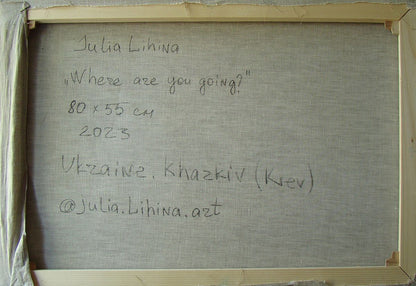 Julia Lihina
„Where are you going?"
80 x 55 см
2023
Ukraine. Kharkiv (Kiev)
@Julia.Lihina.art